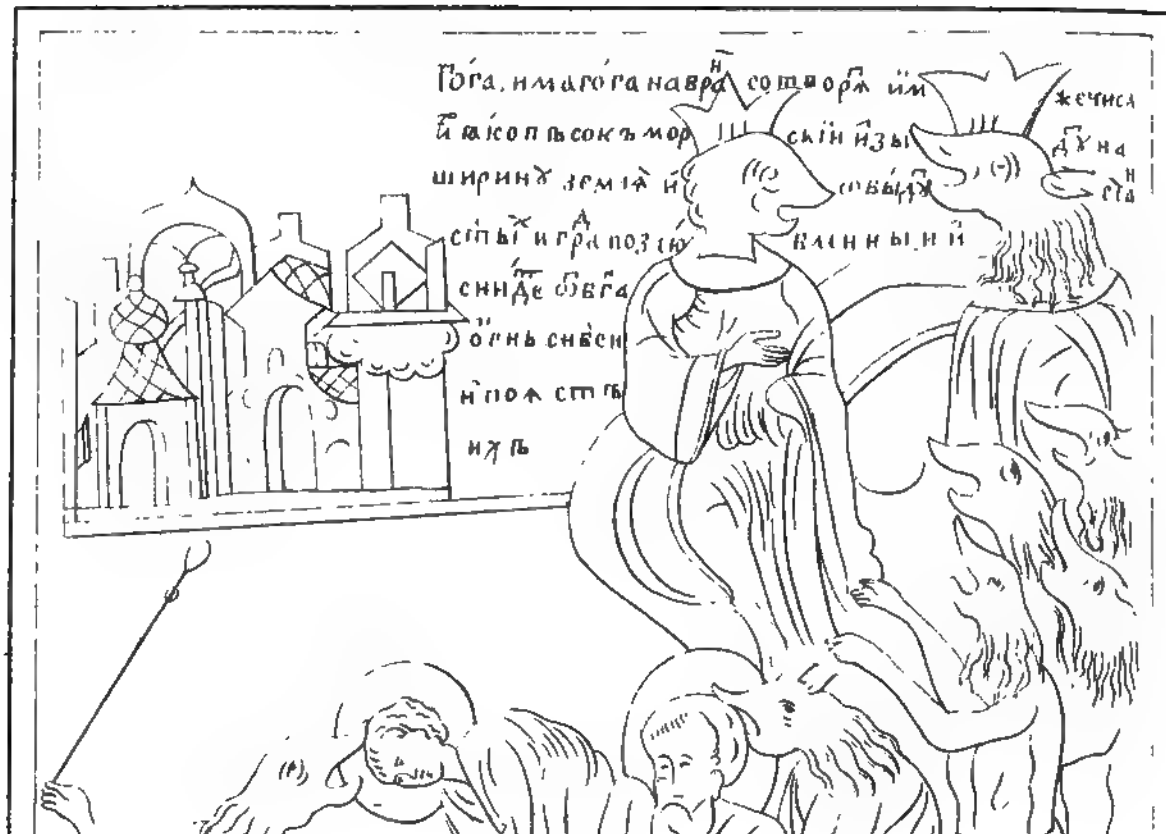 Го́га, и маго́га на вра сотворѧ и҆́м же числ
ꙗ҆́ко пѣсокъ морскїи и҆зы дꙋ на
ширинꙋ землѧ̀ и҆ ѡбы́д ста
ст҃ы и гра возлю вленныи и҆
сниде ѿ бг҃а
о҆́гнь с нб҃си
и҆ поѧстъ
ихъ